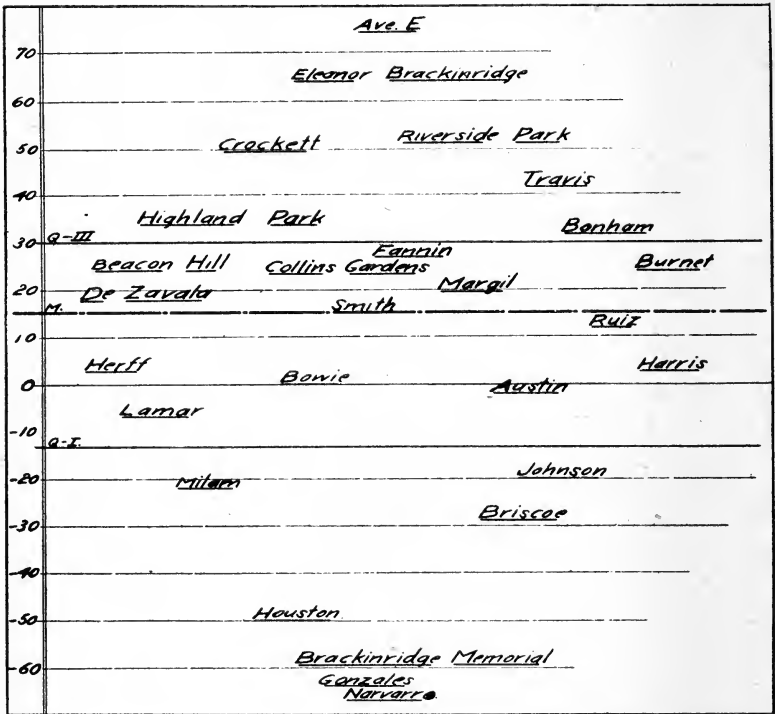 Ave. E
70
Eleanor Brackinridge
60
Crockett Riverside Park
50
Travis
40
Highland Park Bonham
Q-III
30
Fannin
Beacon Hill Collins Gardens Burnet
20
De Zavala Margil
M. Smith
Ruiz
10
Herff Bowie Harris
0
Austin
Lamar
-10
Q-I.
-20
Milam Johnson
Briscoe
-30
-40
Houston
-50
Brackinridge Memorial
-60
Gonzales
Narvarro